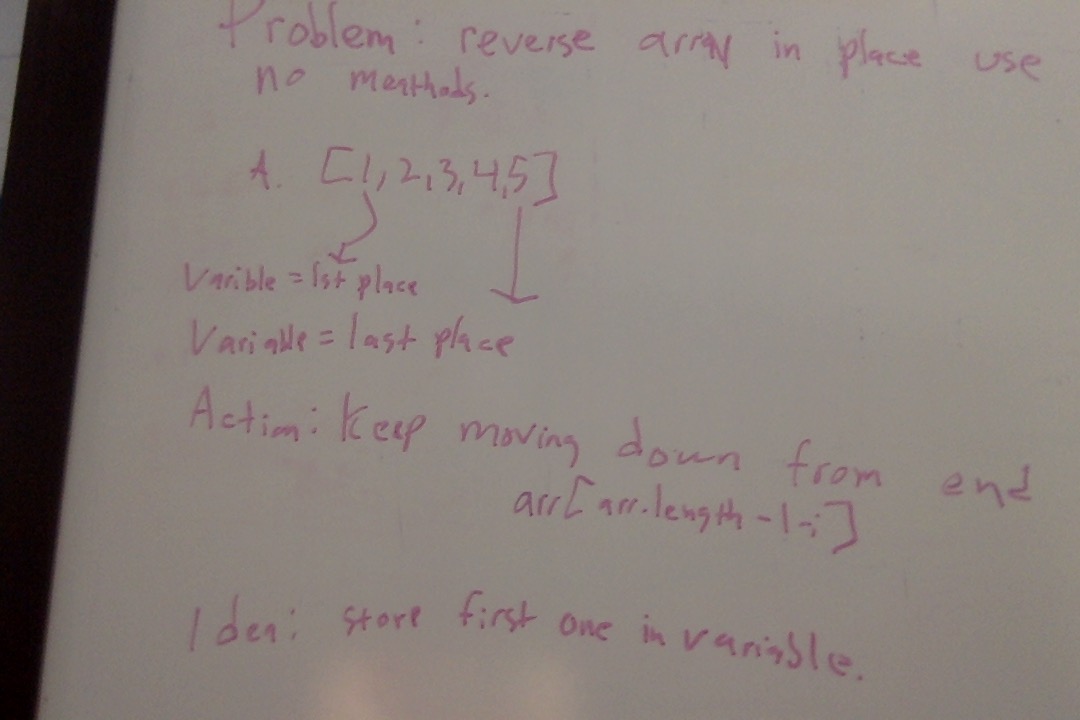 Problem: reverse array in place use
no meathods.
A. [1,2,3,4,5]
Varible = 1st place
Variable = last place
Action: Keep moving down from end
arr[arr.length-1-i]
Idea: store first one in variable.